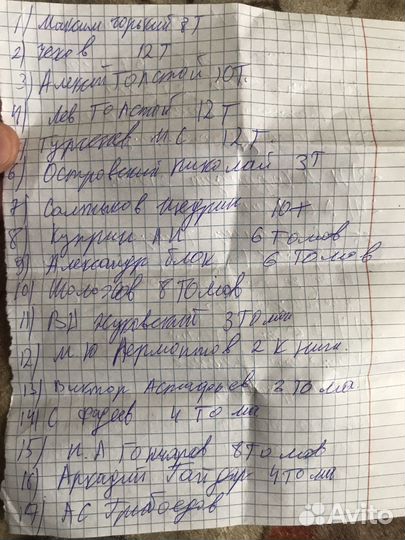 1) Максим Горький 8 Т
2) Чехов 12 Т
3) Алексей Толстой 10 Т.
4) Лев Толстой 12 Т
5) Тургенев И.С 12 Т
6) Островский Николай 3 Т
7) Салтыков Щедрин 10 Т
8) Куприн А И 6 Томов
9) Александр Блок 6 Томов
10) Шолохов 8 Томов
11) Жуковский 3 Тома
12) М Ю Лермонтов 2 Книги.
13) Виктор Астафьев 3 Тома
14) С Фадеев 4 Тома
15) И.А Гончаров 8 Томов
16) Аркадий Гайдар 4 Томы
17) АС Грибоедов
Avito